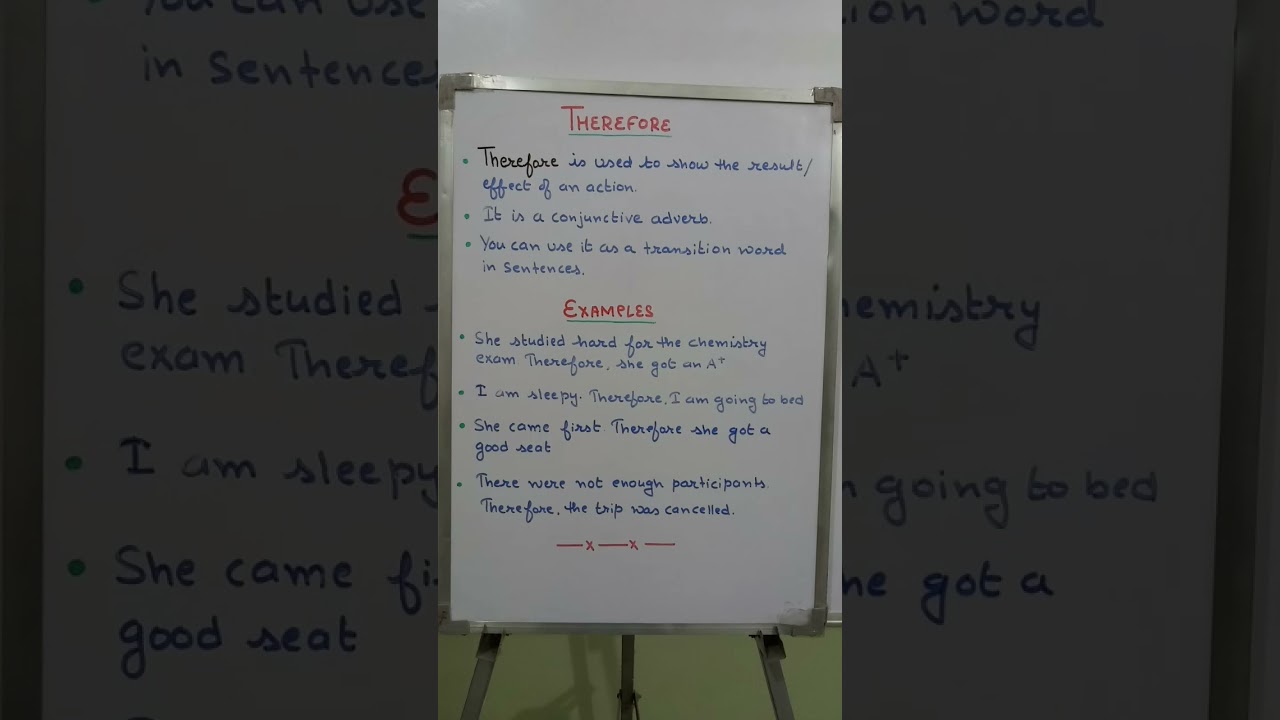 THEREFORE
• Therefore is used to show the result/
effect of an action.
• It is a conjunctive adverb.
• You can use it as a transition word
in sentences.
EXAMPLES
• She studied hard for the chemistry
exam Therefore, she got an A+
• I am sleepy. Therefore, I am going to bed
• She came first. Therefore she got a
good seat
• There were not enough participants.
Therefore, the trip was cancelled.
—x—x—